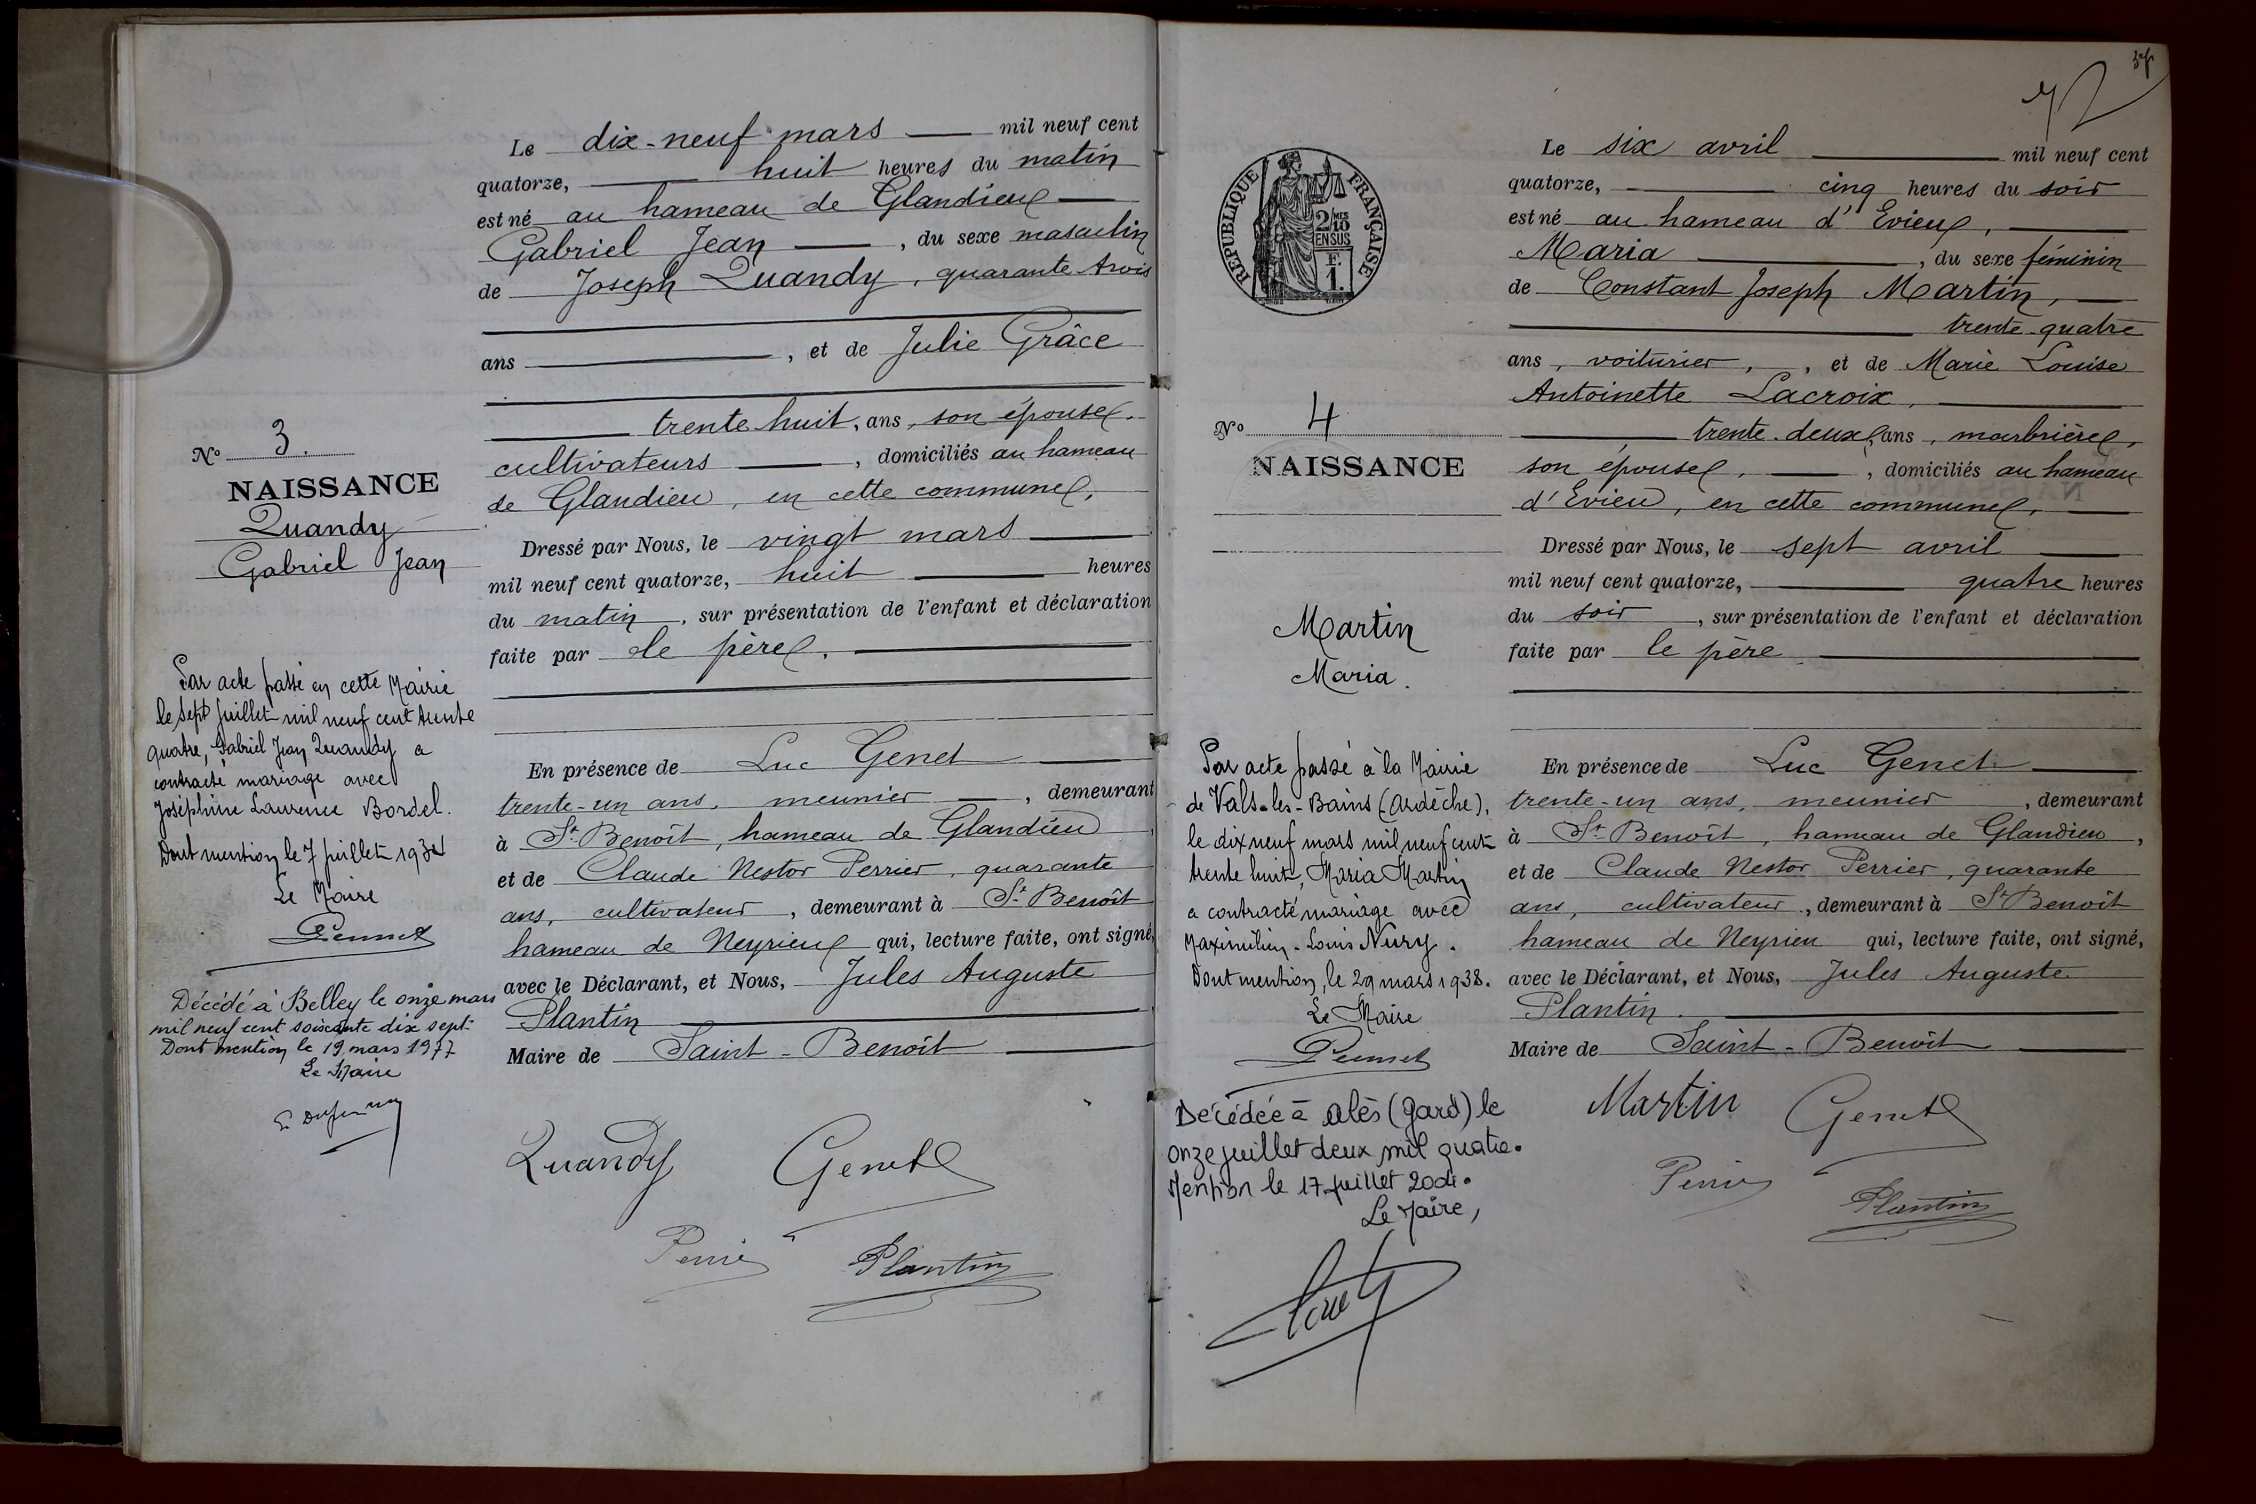 Le dix-neuf mars mil neuf cent
quatorze, huit heures du matin
est né au hameau de Glandieu
Gabriel Jean, du sexe masculin
de Joseph Quandy, quarante trois
ans, et de Julie Grâce
trente huit, ans, son épouse,
cultivateurs, domiciliés au hameau
de Glandieu, en cette commune,
Dressé par Nous, le vingt mars
mil neuf cent quatorze, huit heures
du matin, sur présentation de l'enfant et déclaration
faite par le père,
En présence de Luc Genet
trente-un ans, meunier, demeurant
à St Benoît, hameau de Glandieu,
et de Claude Nestor Perrier, quarante
ans, cultivateur, demeurant à St Benoît
hameau de Neyrieu qui, lecture faite, ont signé,
avec le Déclarant, et Nous, Jules Auguste
Plantin
Maire de Saint-Benoît
Quandy Genet
Perrier Plantin
No 3.
NAISSANCE
Quandy
Gabriel Jean
Par acte passé en cette Mairie
le sept juillet mil neuf cent trente
quatre, Gabriel Jean Quandy a
contracté mariage avec
Joséphine Laurence Bordel.
Dont mention le 7 juillet 1934
Le Maire
Décédé à Belley le onze mars
mil neuf cent soixante dix sept
Dont mention le 19 mars 1977
Le Maire
RÉPUBLIQUE FRANÇAISE
2/10 MES
EN SUS
F.
1.
Le six avril mil neuf cent
quatorze, cinq heures du soir
est né au hameau d'Evieu,
Maria, du sexe féminin
de Constant Joseph Martin,
trente-quatre
ans, voiturier, et de Marie Louise
Antoinette Lacroix,
trente-deux, ans, marbrière,
son épouse, domiciliés au hameau
d'Evieu, en cette commune,
Dressé par Nous, le sept avril
mil neuf cent quatorze, quatre heures
du soir, sur présentation de l'enfant et déclaration
faite par le père
En présence de Luc Genet
trente-un ans, meunier, demeurant
à St Benoît, hameau de Glandieu,
et de Claude Nestor Perrier, quarante
ans, cultivateur, demeurant à St Benoît
hameau de Neyrieu qui, lecture faite, ont signé,
avec le Déclarant, et Nous, Jules Auguste
Plantin.
Maire de Saint-Benoît
Martin Genet
Perrier Plantin
No 4
NAISSANCE
Martin
Maria.
Par acte passé à la Mairie
de Vals-les-Bains (Ardèche),
le dix neuf mars mil neuf cent
trente huit, Maria Martin
a contracté mariage avec
Maximilien-Louis Nury.
Dont mention, le 29 mars 1938.
Le Maire
Décédée à Alès (Gard) le
onze juillet deux mil quatre.
Mention le 17 juillet 2004.
Le Maire,